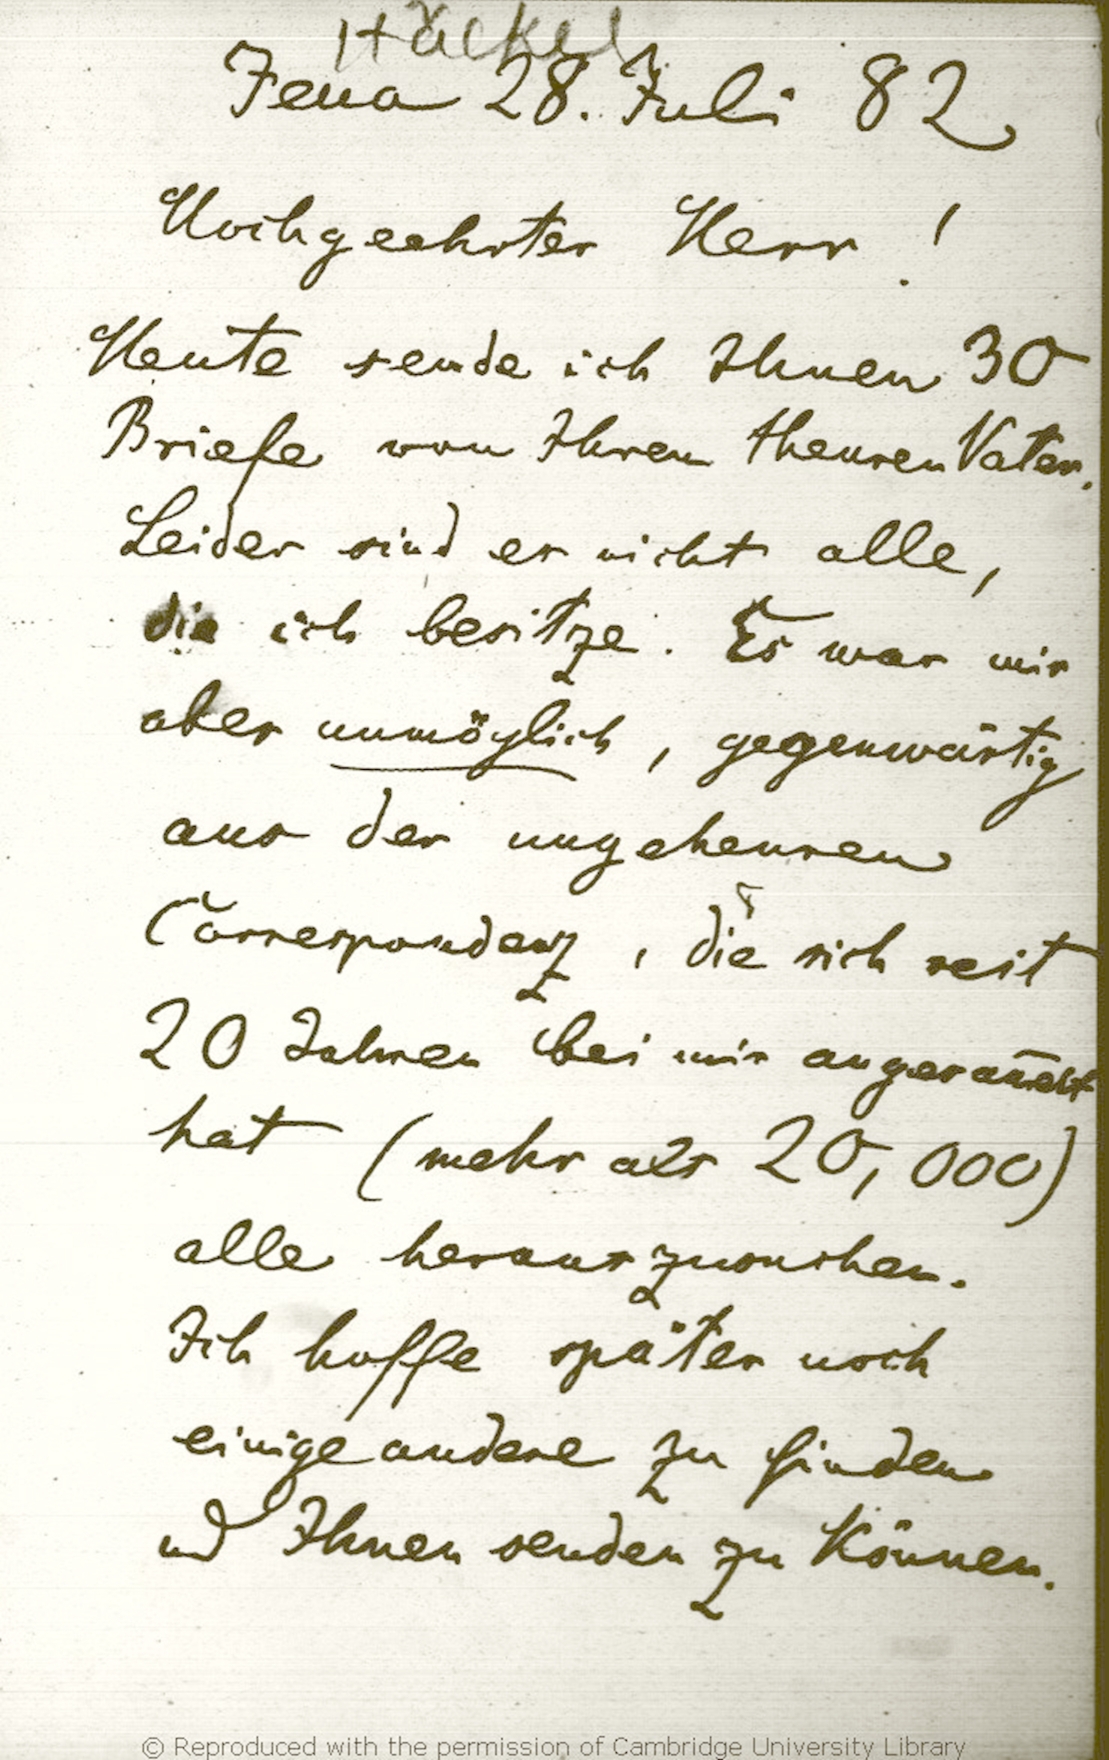 Häckel
Jena 28. Juli 82
Hochgeehrter Herr!
Heute sende ich Ihnen 30
Briefe von Ihrem theuren Vater.
Leider sind es nicht alle,
die ich besitze. Es war mir
aber unmöglich, gegenwärtig
aus der ungeheuren
Correspondenz, die sich seit
20 Jahren bei mir angesam̅elt
hat (mehr als 20,000)
alle herauszusuchen.
Ich hoffe später noch
einige andere zu finden
und Ihnen senden zu können.
© Reproduced with the permission of Cambridge University Library